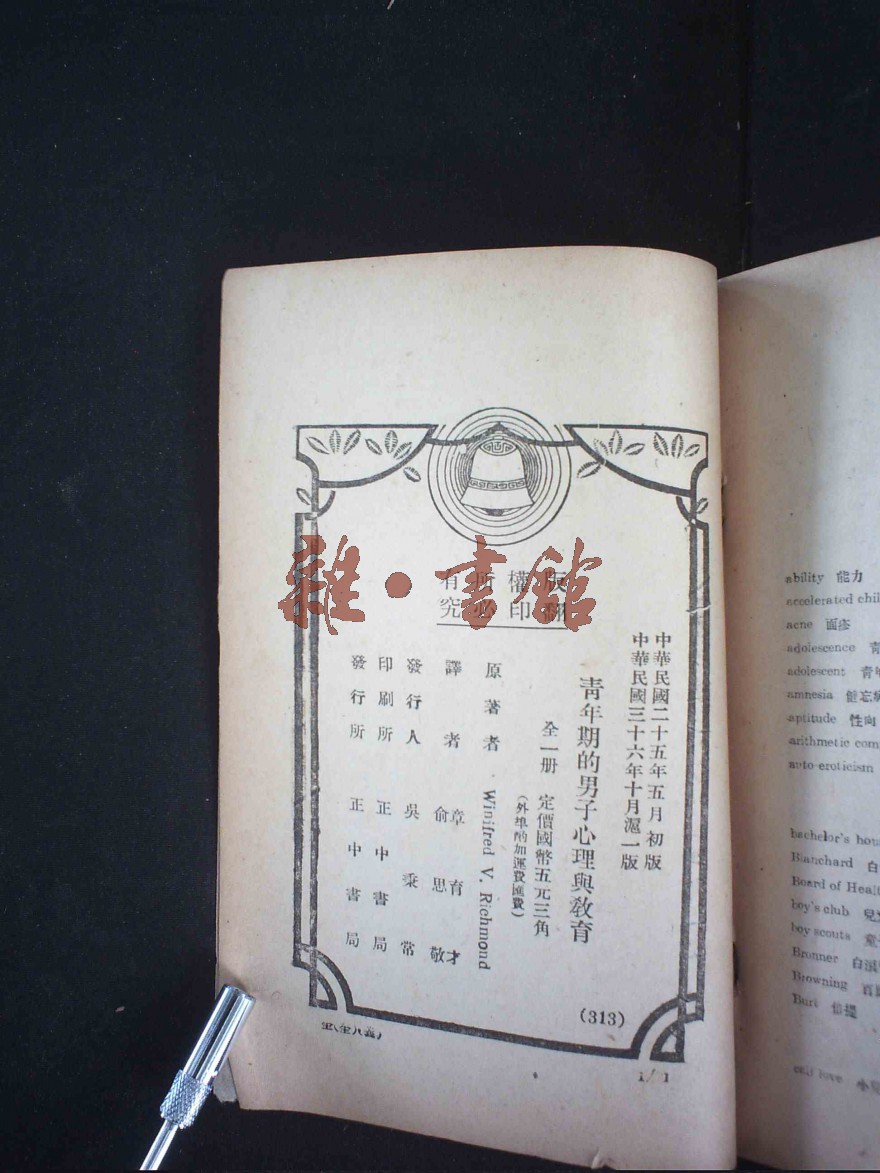 雜·書館
版權所有
翻印必究
中華民國二十五年五月初版
中華民國三十六年十月滬一版
青年期的男子心理與教育
全一册 定價國幣五元三角
(外埠酌加運費匯費)
原著者 Winifred V. Richmond
譯者 章育才
俞思敬
發行人 吳秉常
印刷所 正中書局
發行所 正中書局
(313)
1/1
ability 能力
accelerated
acne 面疹
adolescence
adolescent
amnesia 健忘
aptitude 性向
arithmetic
auto-eroticism
bachelor's
Blanchard
Board of
boy's club
boy scouts
Bronner
Browning
Burt
love